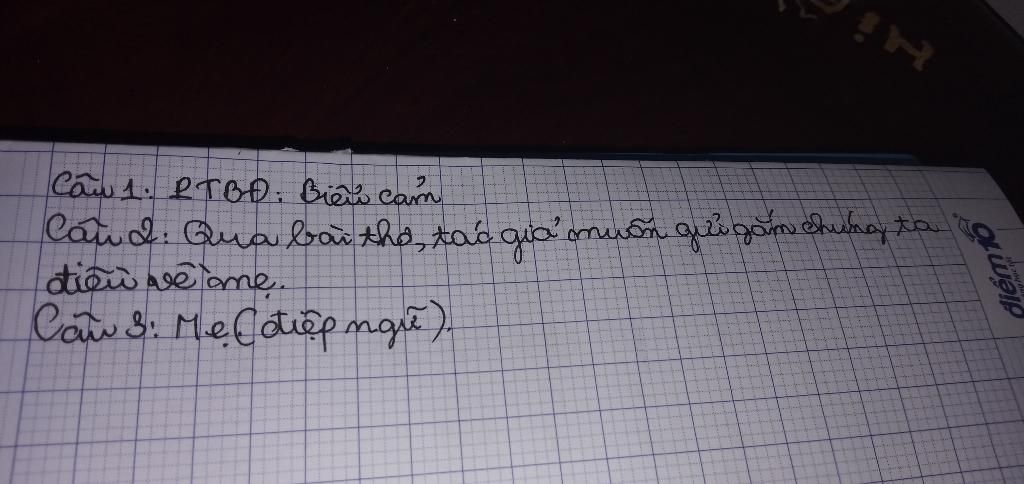 Câu 1: PTBĐ: Biểu cảm
Câu 2: Qua bài thơ, tác giả muốn gửi gắm chúng ta
điều về mẹ.
Câu 3: Mẹ (điệp ngữ).
điểm 10